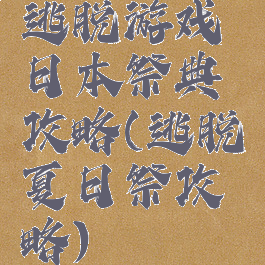 逃脱游戏
日本祭典
攻略(逃脱
夏日祭攻
略)